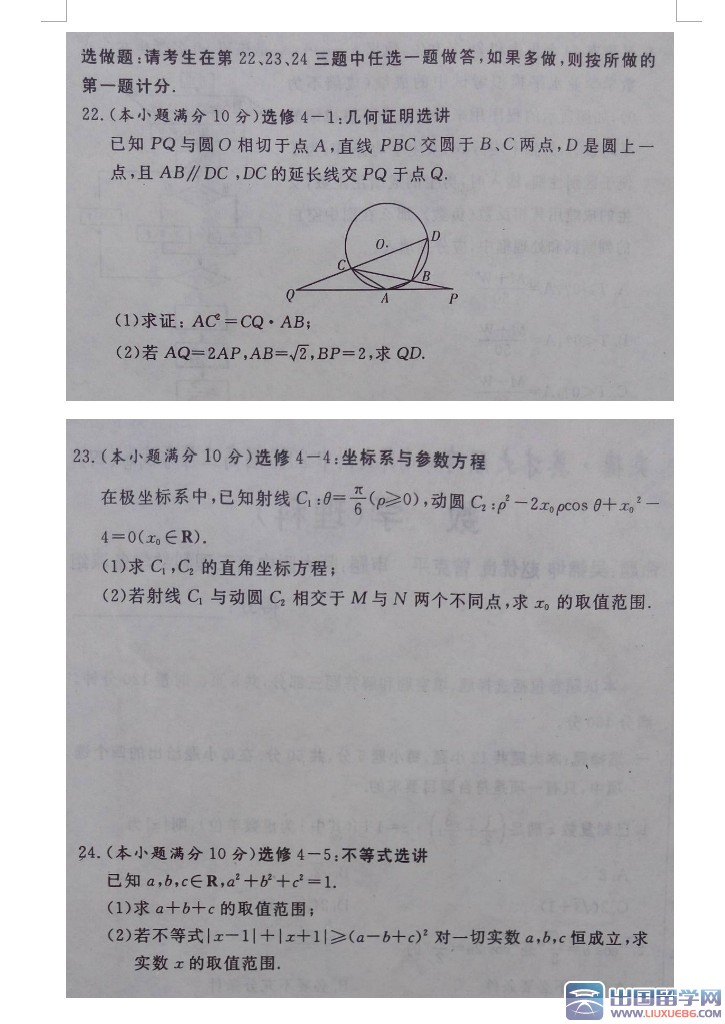 选做题:请考生在第 22、23、24 三题中任选一题做答,如果多做,则按所做的
第一题计分.
22.(本小题满分 10 分)选修 4-1:几何证明选讲
已知 PQ 与圆 O 相切于点 A,直线 PBC 交圆于 B、C 两点,D 是圆上一
点,且 AB∥DC,DC 的延长线交 PQ 于点 Q.
D
O.
C
B
Q
A
P
(1)求证: AC²=CQ·AB;
(2)若 AQ=2AP,AB=√2,BP=2,求 QD.
23.(本小题满分 10 分)选修 4-4:坐标系与参数方程
在极坐标系中,已知射线 C₁:θ=π/6(ρ≥0),动圆 C₂:ρ²-2x₀ρcos θ+x₀²-
4=0(x₀∈R).
(1)求 C₁,C₂ 的直角坐标方程;
(2)若射线 C₁ 与动圆 C₂ 相交于 M 与 N 两个不同点,求 x₀ 的取值范围.
24.(本小题满分 10 分)选修 4-5:不等式选讲
已知 a,b,c∈R,a²+b²+c²=1.
(1)求 a+b+c 的取值范围;
(2)若不等式|x-1|+|x+1|≥(a-b+c)² 对一切实数 a,b,c 恒成立,求
实数 x 的取值范围.
出国留学网
www.LIUXUE86.COM